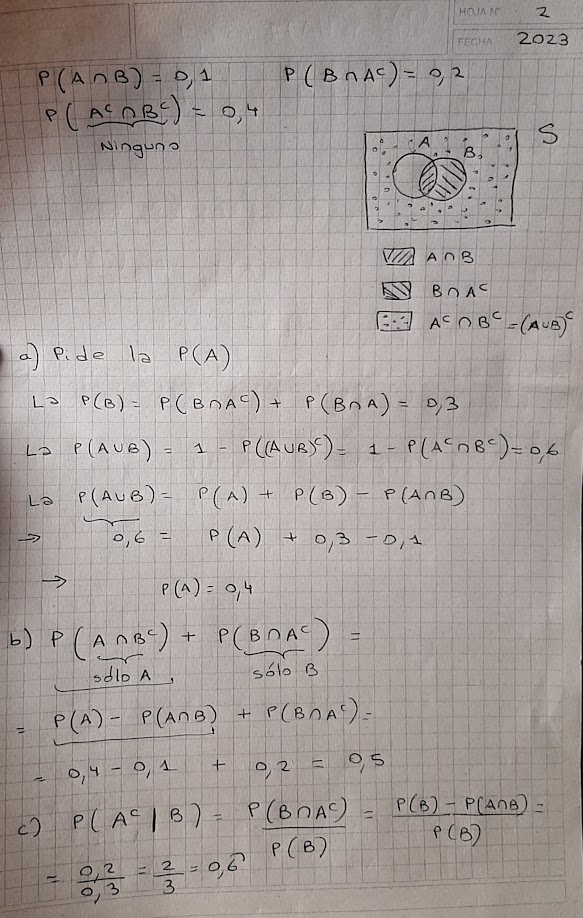 HOJA Nº 2
FECHA 2023
P(A∩B) = 0,1 P(B∩Aᶜ) = 0,2
P(Aᶜ∩Bᶜ) = 0,4
Ninguno
S
A
B
A∩B
B∩Aᶜ
Aᶜ∩Bᶜ=(A∪B)ᶜ
a) Pide la P(A)
L> P(B) = P(B∩Aᶜ) + P(B∩A) = 0,3
L> P(A∪B) = 1 - P((A∪B)ᶜ) = 1 - P(Aᶜ∩Bᶜ)=0,6
L> P(A∪B) = P(A) + P(B) - P(A∩B)
→ 0,6 = P(A) + 0,3 - 0,1
→ P(A) = 0,4
b) P(A∩Bᶜ) + P(B∩Aᶜ) =
sólo A sólo B
= P(A) - P(A∩B) + P(B∩Aᶜ) =
= 0,4 - 0,1 + 0,2 = 0,5
c) P(Aᶜ | B) = P(B∩Aᶜ)/P(B) = P(B) - P(A∩B)/P(B) =
= 0,2/0,3 = 2/3 = 0,6̂